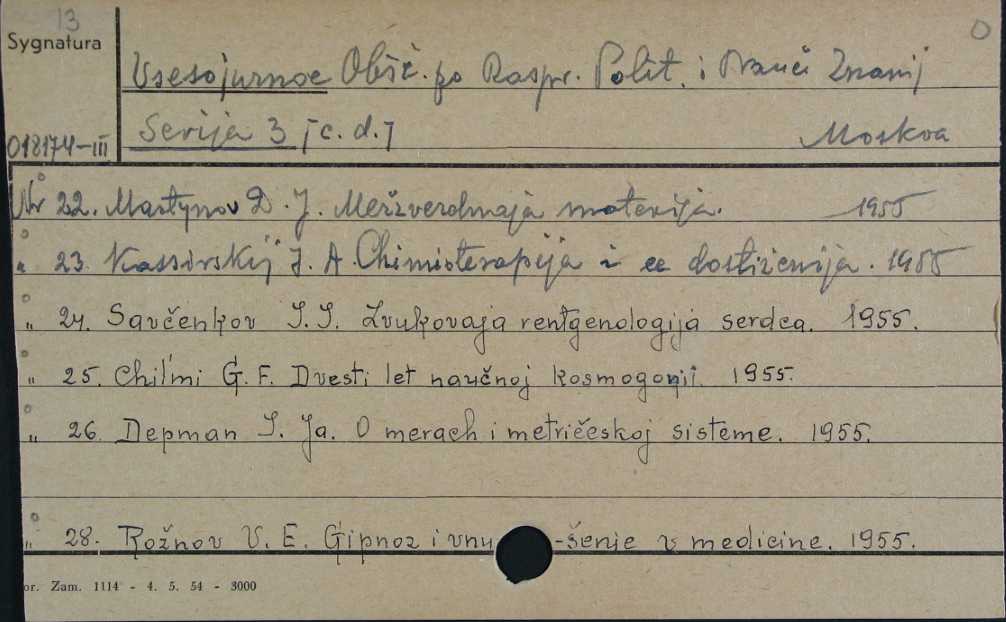 13
O
Sygnatura
Vsesojuznoe Obšč. po Raspr. Polit. i Nauč. Znanij
018174-III
Serija 3 [c. d.]
Moskva
Nr 22. Martynov D. J. Mežzvezdnaja materija. 1955
" 23. Kassirskij J. A. Chimioterapija i ee dostiženija. 1955
" 24. Savčenkov I. I. Zvukovaja rentgenologija serdca. 1955.
" 25. Chil'mi G. F. Dvesti let naučnoj kosmogonii. 1955.
" 26. Depman I. Ja. O merach i metričeskoj sisteme. 1955.
" 28. Rožnov V. E. Gipnoz i vnu -šenie v medicine. 1955.
or. Zam. 1114 - 4. 5. 54 - 3000